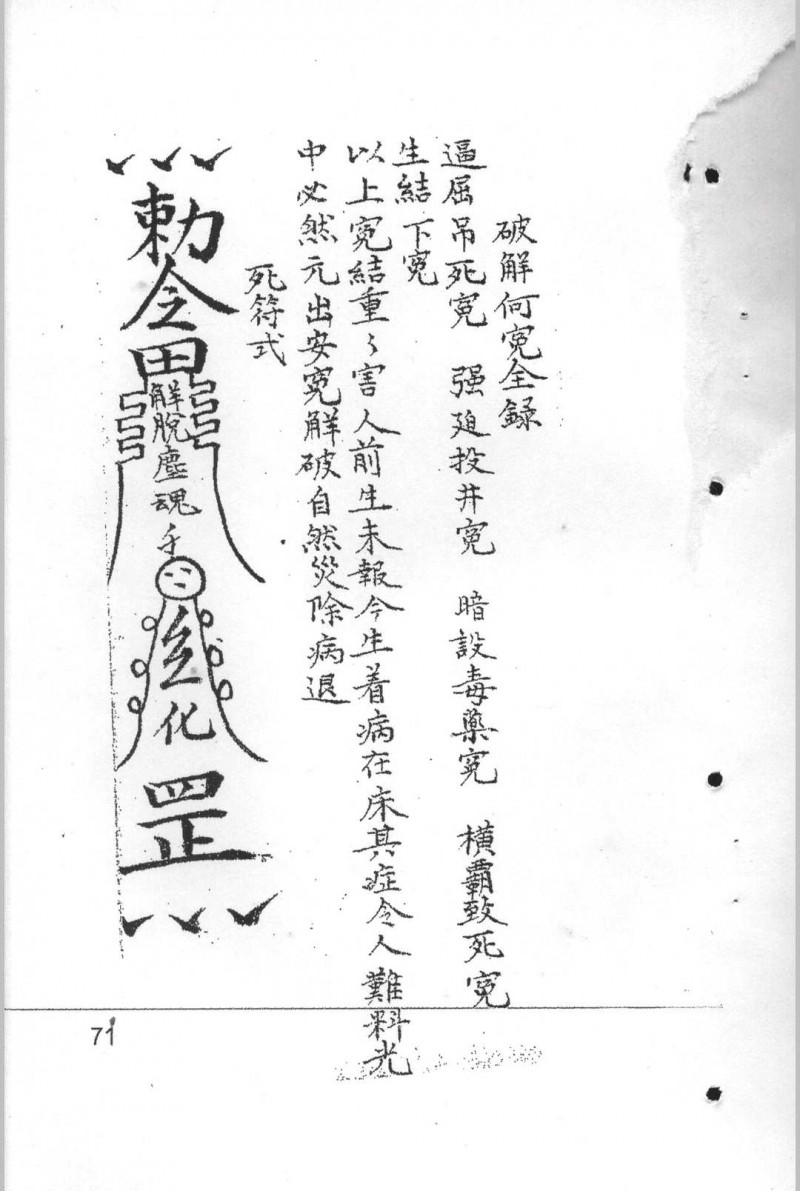 破解何冤全録
逼屈吊死冤 强廹投井冤 暗設毒藥冤 橫霸致死冤
生結下冤
以上冤結重々害人前生未報今生着病在床其症令人難料光
中必然元出安冤解破自然災除病退
死符式
勅令
田
解脫塵魂
化
罡
71